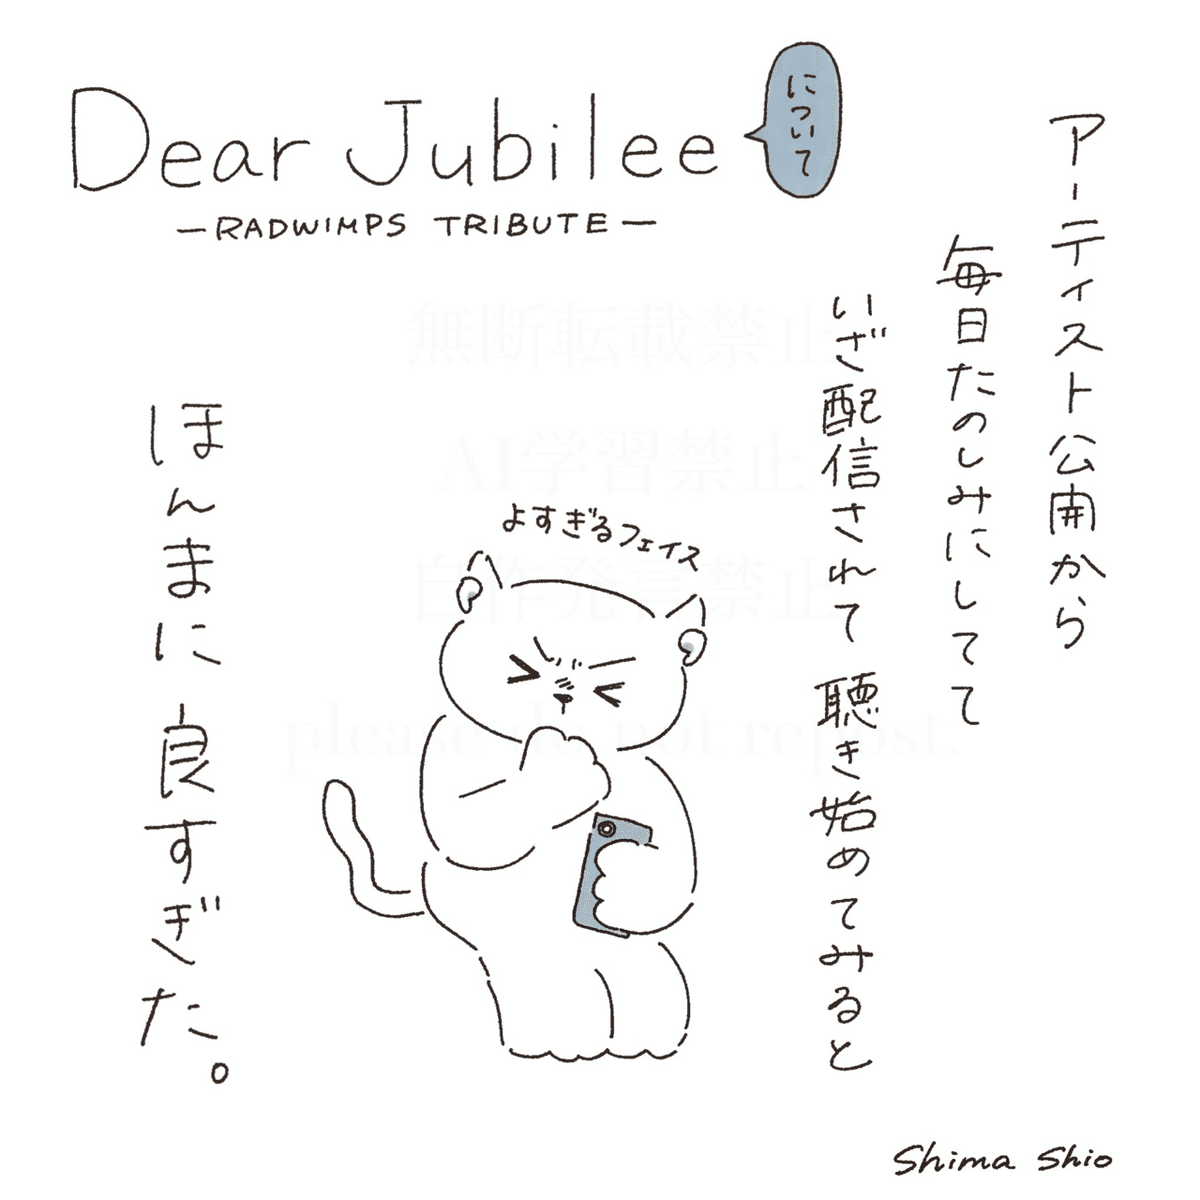 Dear Jubilee
について
—RADWIMPS TRIBUTE—
アーティスト公開から
毎日たのしみにしてて
いざ配信されて聴き始めてみると
よすぎるフェイス
ほんまに良すぎた。
無断転載禁止
AI学習禁止
自作発言禁止
please do not repost.
Shima Shio